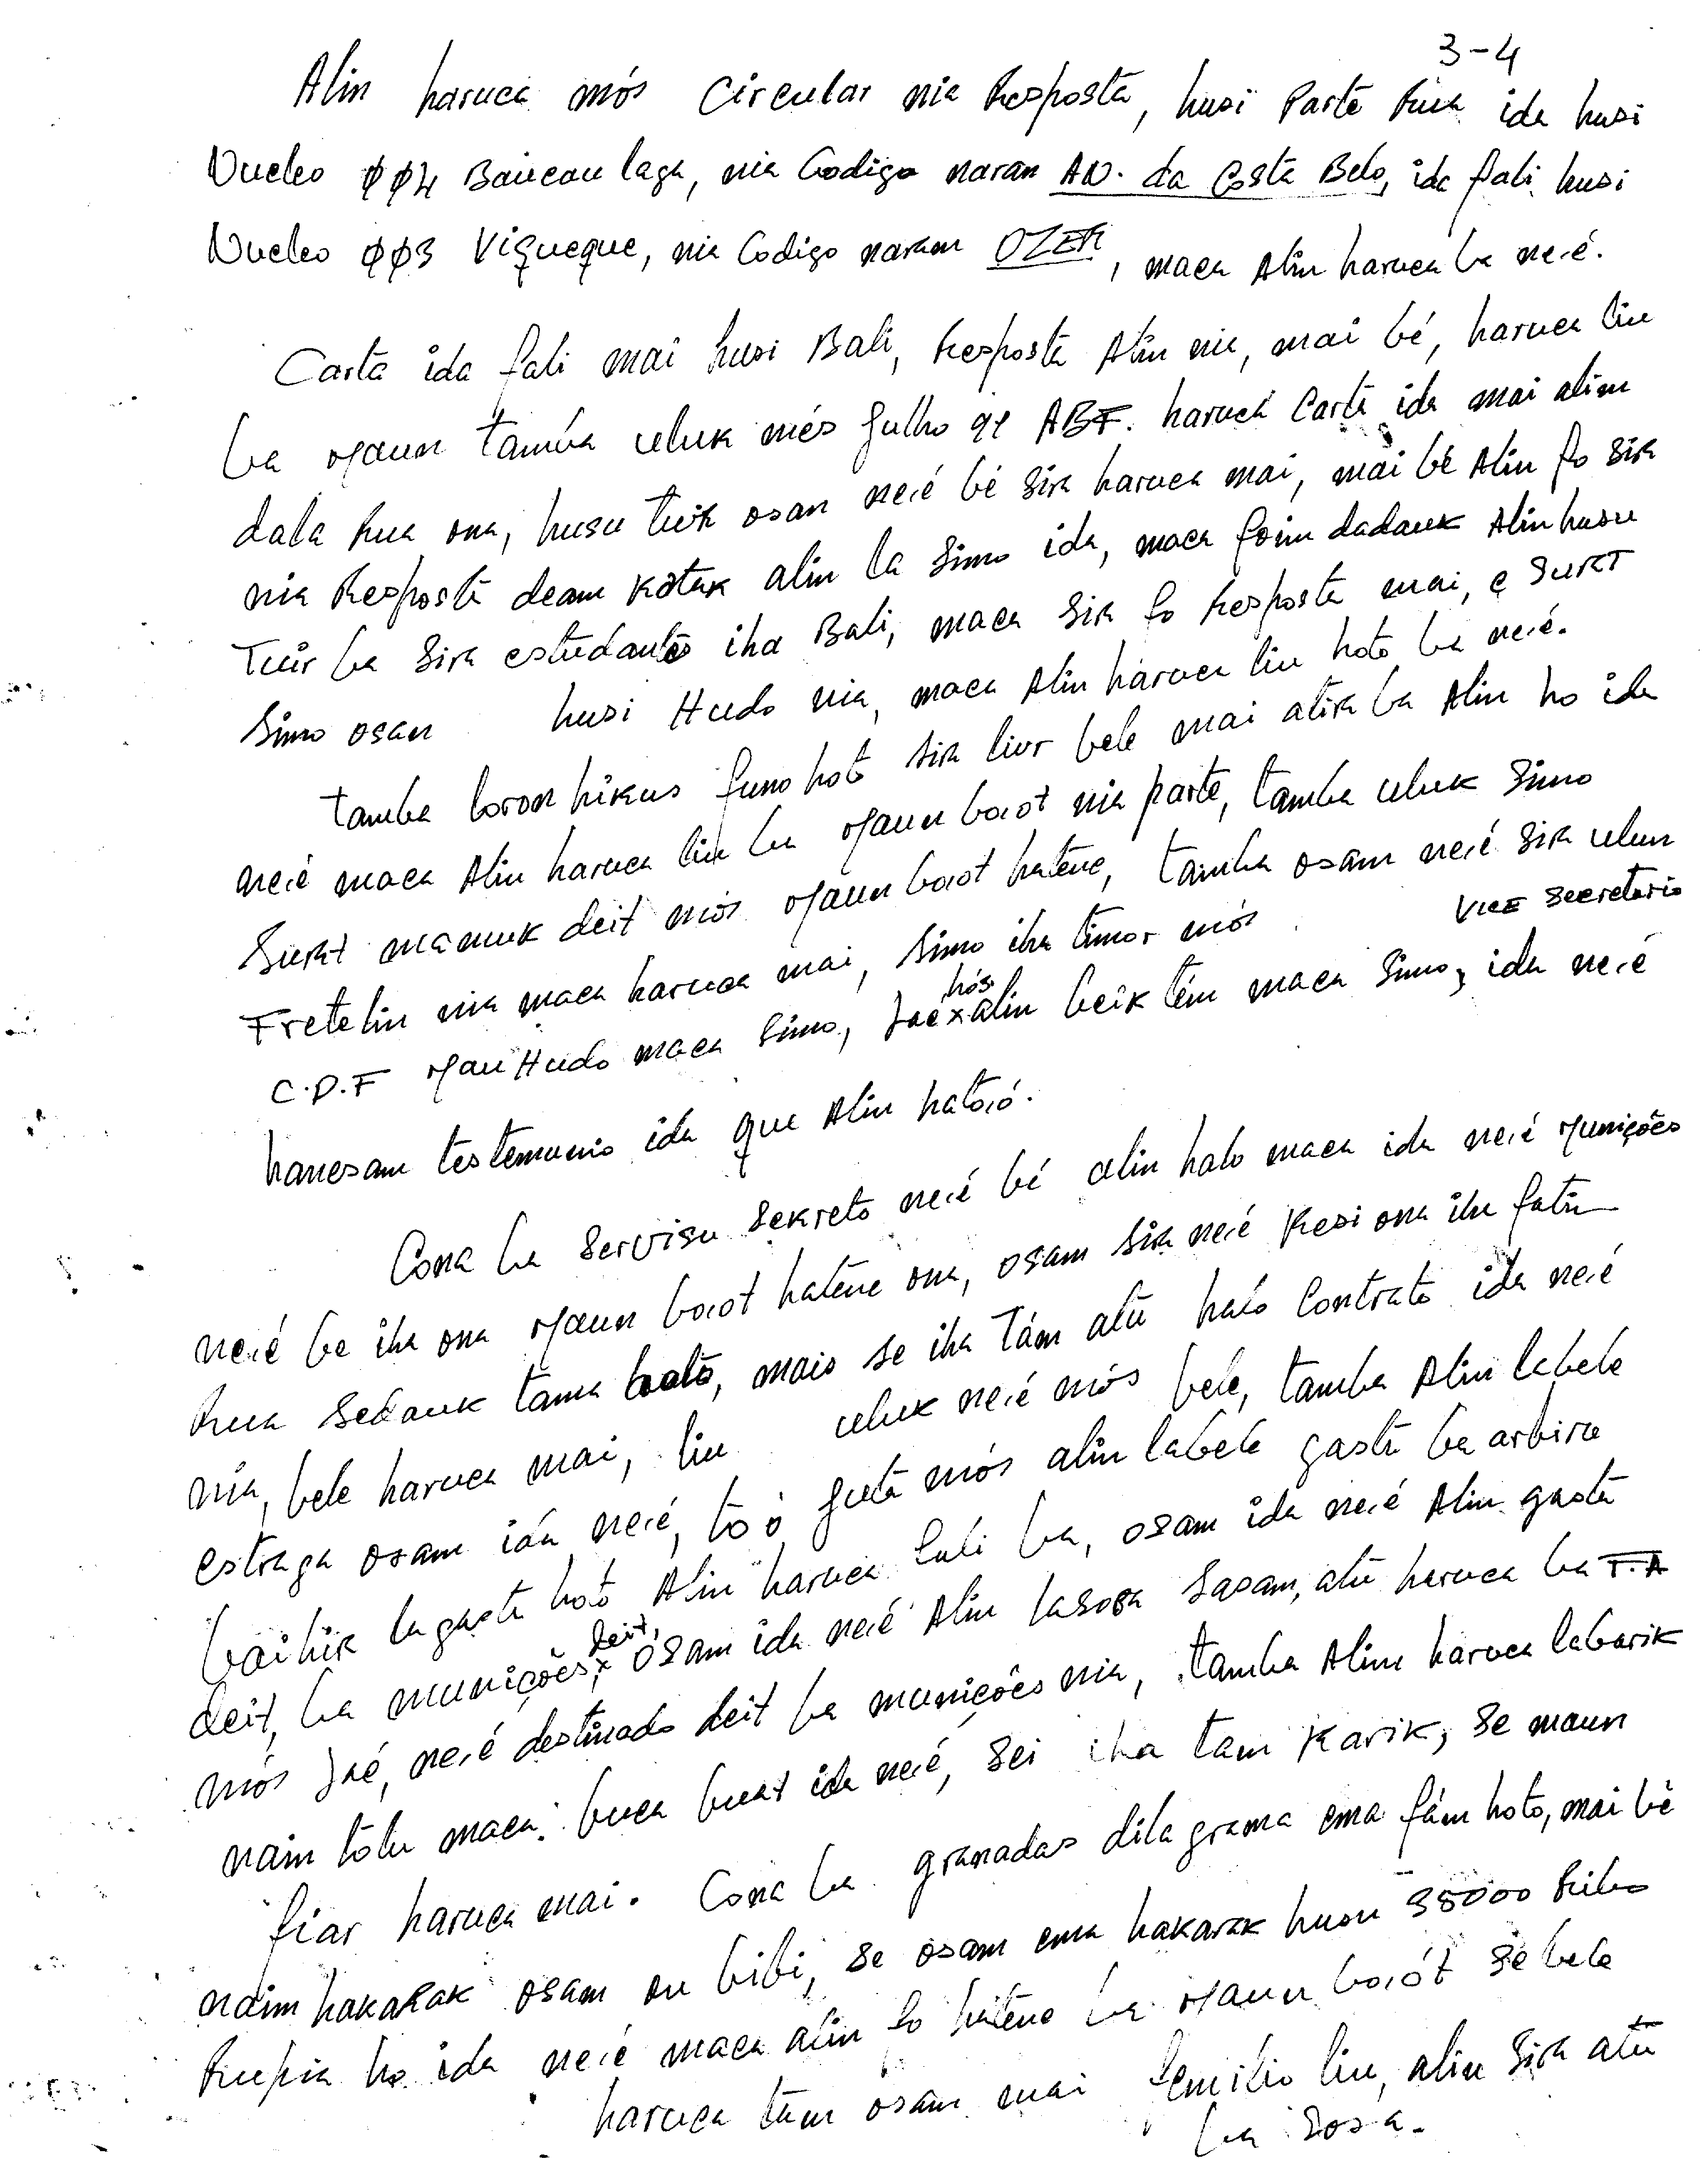 3-4
Alin haruca mós Circular nia Resposta, husi Parte Rua ida husi
Nucleo ØØ4 Baucau laga, nia Codigo naran AN. da Costa Belo, ida fali husi
Nucleo ØØ3 Viqueque, nia Codigo naram OZER, maca Alin haruca ba neié.
Carta ida fali mai husi Bali, Resposta Alin nia, mai bé, haruca liu
ba Maun tamba uluk més Julho 91 ABF. haruca Carta ida mai alin
dala Rua ona, husu tuir osan neié bé sira haruca mai, mai bé Alin fo sira
nia Resposta deam katak alin la simo ida, maca foin dadauk Alin husu
Tuir ba sira estudante iha Bali, maca sira fo Resposta mai, e surat
simo osan husi Hudo nia, maca Alin haruca liu hoto ba neié.
tamba loron hikus funo hot sira liur bele mai atira ba Alin ho ida
neié maca Alin haruca liu ba Maun boiot nia parte, tamba uluk simo
surat mamuk deit mós Maun boiot hatene, tamba osam neié sira ulun
Fretelin nia maca haruca mai, simo iha timor mós Vice secretario
C.D.F Mau Hudo maca simo, Jaé hósi alin beik tém maca simo, ida neié
hanesam testemunio ida que Alin hatoió.
Cona ba servisu sekreto neié bé alin halo maca ida neié Munições
neié be iha ona Maun boiot hatene ona, osam sira neié Kesi ona iha fatin
Rua sedauk tama hoto, mais se iha Tám atu halo Contrato ida neié
nia, bele haruca mai, liu uluk neié mós bele, tamba Alin labele
estraga osam ida neié, tó ó Juta mós alin labele gasta ba arbiru
baihir la gasta hotó Alin haruca fali ba, osam ida neié Alin gasta
deit, ba munições deit, osam ida neié Alin lasosa sasam, atu haruca ba F.A
mós Jaé, neié destinado deit ba munições nia, tamba Alin haruca labarik
nain tolu maca buca buat ida neié, sei iha tam karik, se maun
fiar haruca mai. Cona ba granadas dilagrama ema fám hoto, mai bé
naim hakarak osam ou bibi, se osam ema hakarak husu 35000 Ribo
Rupia ho ida neié maca alin fo hatene ba Maun boiót se bele
haruca tam osam mai emilio liu, alin sira atu
ba sosa.